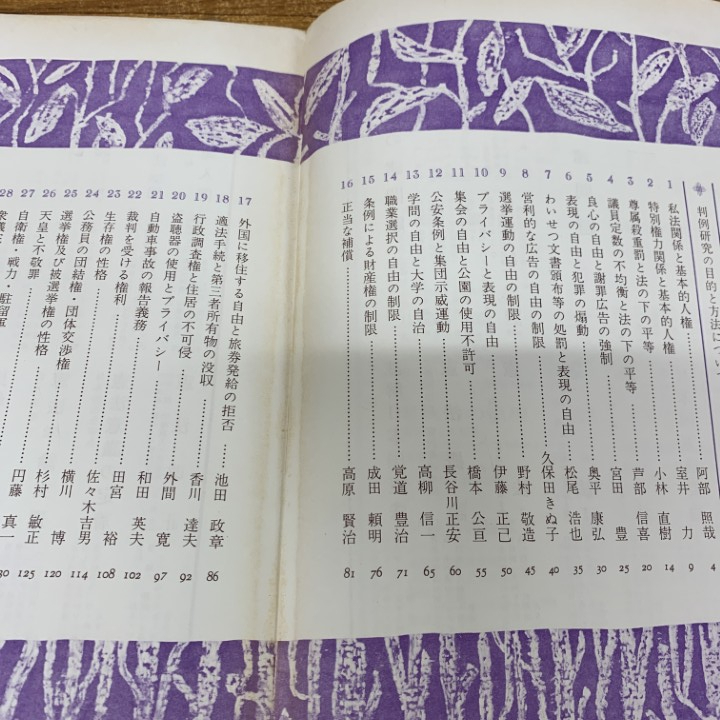 判例研究の目的と方法につい 阿部 照哉 4
1 私法関係と基本的人権 室井 力 9
2 特別権力関係と基本的人権 小林 直樹 14
3 尊属殺重罰と法の下の平等 芦部 信喜 20
4 議員定数の不均衡と法の下の平等 宮田 豊 25
5 良心の自由と謝罪広告の強制 奥平 康弘 30
6 表現の自由と犯罪の煽動 松尾 浩也 35
7 わいせつ文書頒布等の処罰と表現の自由 久保田きぬ子 40
8 営利的な広告の自由の制限 野村 敬造 45
9 選挙運動の自由の制限 伊藤 正己 50
10 プライバシーと表現の自由 橋本 公亘 55
11 集会の自由と公園の使用不許可 長谷川正安 60
12 公安条例と集団示威運動 高柳 信一 65
13 学問の自由と大学の自治 覚道 豊治 71
14 職業選択の自由の制限
15 条例による財産権の制限 成田 頼明 76
16 正当な補償 高原 賢治 81
17 外国に移住する自由と旅券発給の拒否 池田 政章 86
18 適法手続と第三者所有物の没収 香川 達夫 92
19 行政調査権と住居の不可侵 外間 寛 97
20 盗聴器の使用とプライバシー 和田 英夫 102
21 自動車事故の報告義務 田宮 裕 108
22 裁判を受ける権利 佐々木吉男 114
23 生存権の性格 横川 博 120
24 公務員の団結権・団体交渉権 杉村 敏正 125
25 選挙権及び被選挙権の性格 円藤 真一 30
26 天皇と不敬罪
27 自衛権・戦力・駐留軍
28 衆議